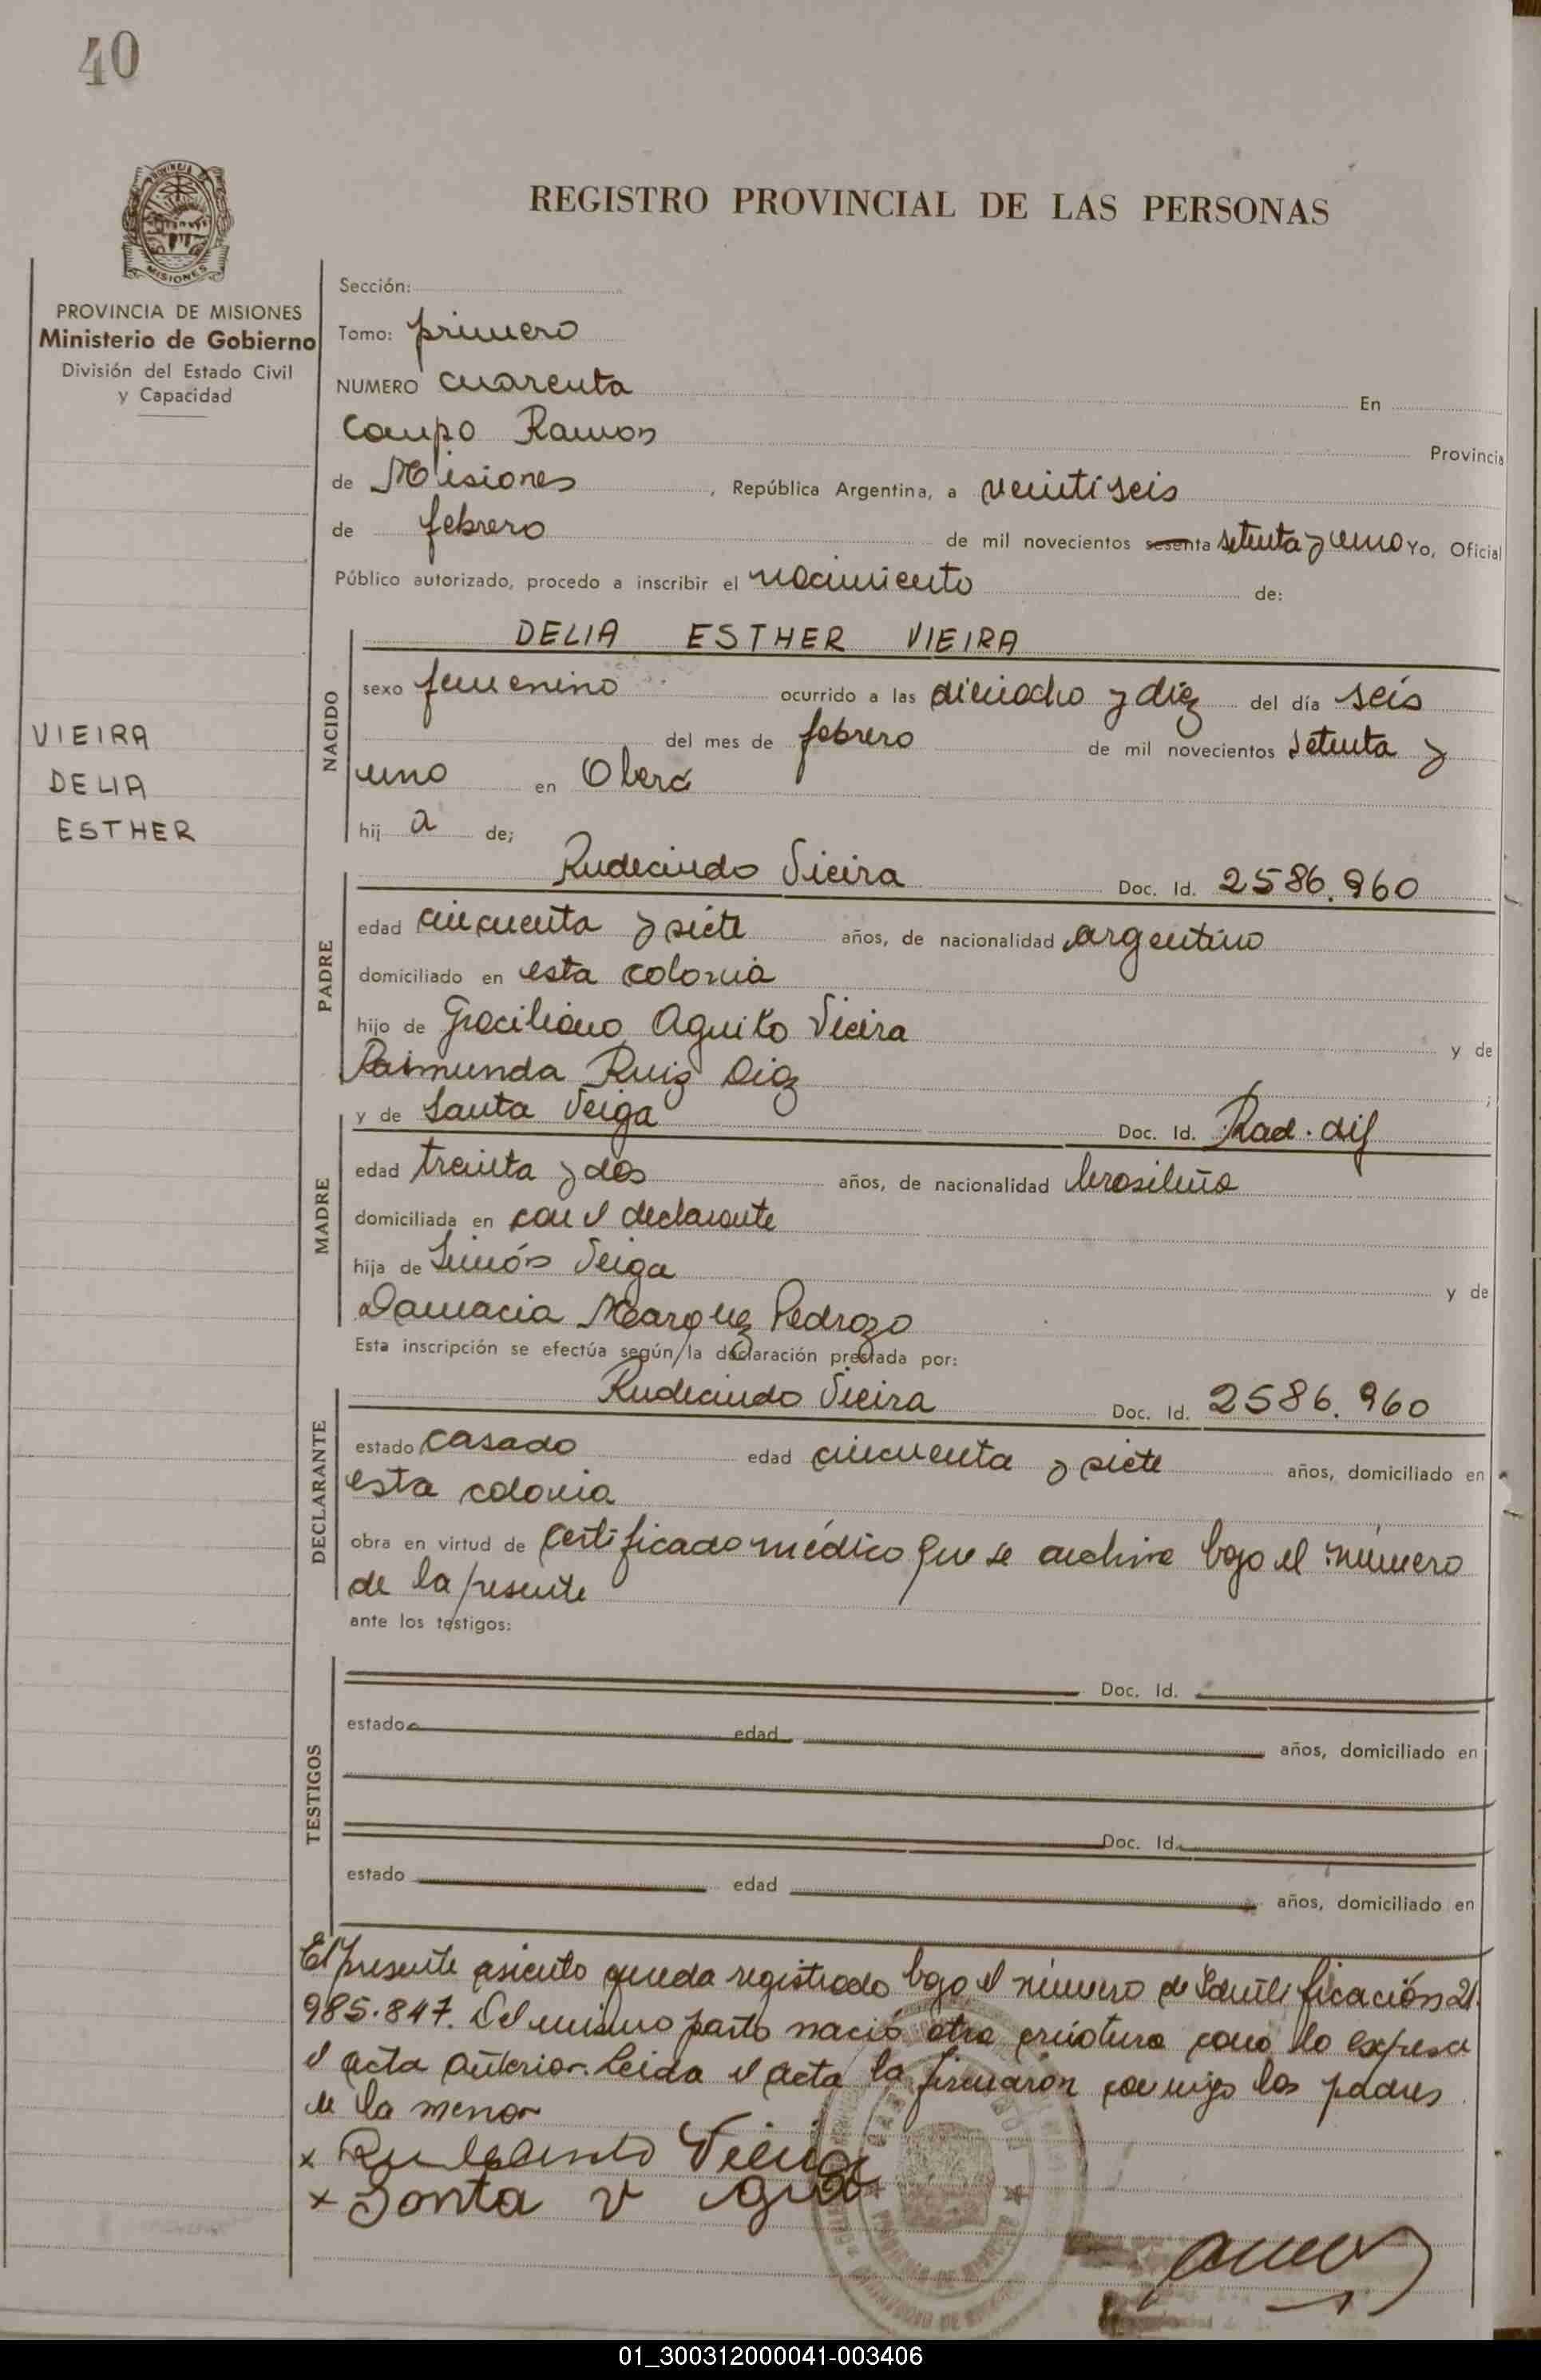 40
MISIONES
PROVINCIA DE MISIONES
Ministerio de Gobierno
División del Estado Civil
y Capacidad
VIEIRA
DELIA
ESTHER
REGISTRO PROVINCIAL DE LAS PERSONAS
Sección:
Tomo: primero
NUMERO cuarenta En
Campo Ramon Provincia
de Misiones, República Argentina, a veintiseis
de febrero de mil novecientos sesenta setenta y uno Yo, Oficial
Público autorizado, procedo a inscribir el nacimiento de:
NACIDO
DELIA ESTHER VIEIRA
sexo femenino ocurrido a las dieciocho y diez del día seis
del mes de febrero de mil novecientos setenta y
uno en Oberá
hij a de;
PADRE
Rudecindo Vieira Doc. Id. 2586.960
edad cincuenta y siete años, de nacionalidad argentino
domiciliado en esta colonia
hijo de Graciliano Aguiko Vieira y de
Raimunda Ruiz Diaz ;
MADRE
y de Santa Veiga Doc. Id. Rad. dif
edad treinta y dos años, de nacionalidad brasileña
domiciliada en con el declarante
hija de Simón Veiga y de
Damacia Marquez Pedrozo
Esta inscripción se efectúa según la declaración prestada por:
DECLARANTE
Rudecindo Vieira Doc. Id. 2586.960
estado casado edad cincuenta y siete años, domiciliado en
esta colonia
obra en virtud de certificado médico que se archiva bajo el número
de la presente
ante los testigos:
TESTIGOS
Doc. Id.
estado edad años, domiciliado en
Doc. Id.
estado edad años, domiciliado en
El presente asiento queda registrado bajo el número de Identificación 21.
985.847. Del mismo parto nació otra criatura como lo expresa
el acta anterior. Leida el acta la firmaron conmigo los padres
de la menor
x Rudecindo Vieira
x Santa v iga
01_300312000041-003406